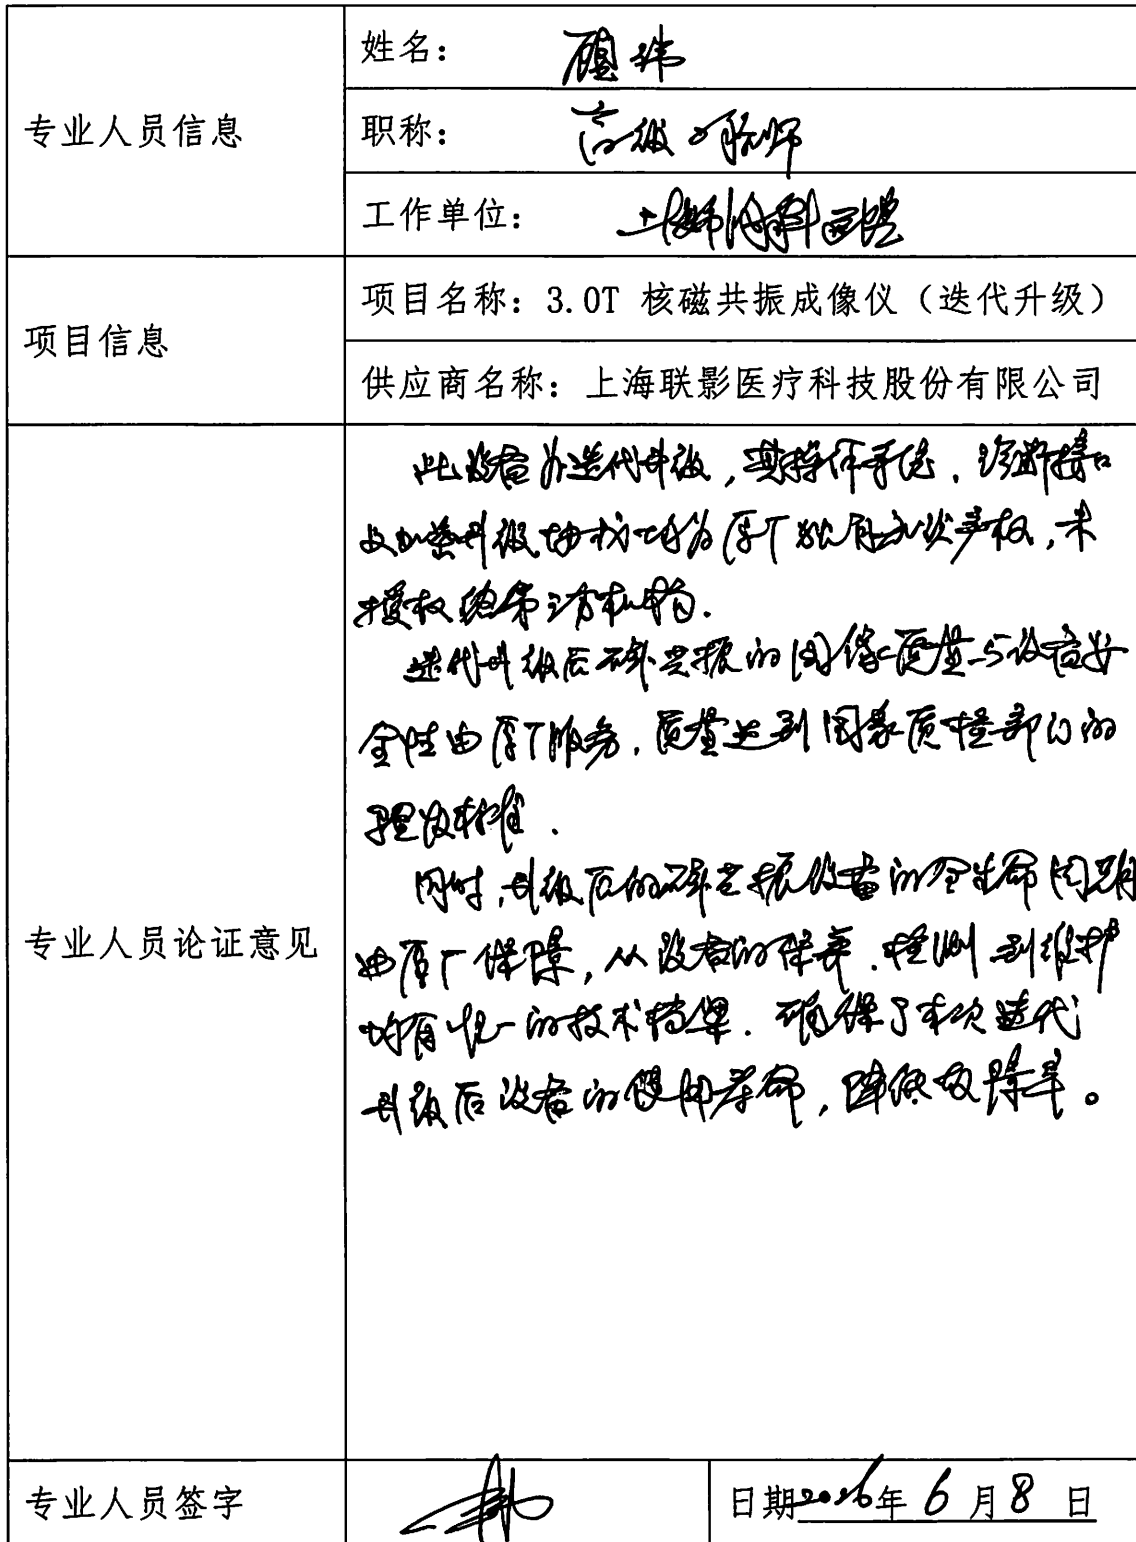 专业人员信息
姓名：顾玮
职称：高级工程师
工作单位：上海市肺科医院
项目信息
项目名称：3.0T 核磁共振成像仪（迭代升级）
供应商名称：上海联影医疗科技股份有限公司
专业人员论证意见
此设备为迭代升级，其操作系统、诊断接口
及加密升级协议均为原厂独有知识产权，未
授权给第三方机构.
迭代升级后磁共振的图像质量与设备安
全性由原厂服务，质量达到国家质检部门的
验收标准.
同时，升级后的磁共振设备的全生命周期
由原厂保障，从设备的保养、检测到维护
均有统一的技术档案. 确保了本次迭代
升级后设备的使用寿命，降低故障率。
专业人员签字
日期2026年6月8日